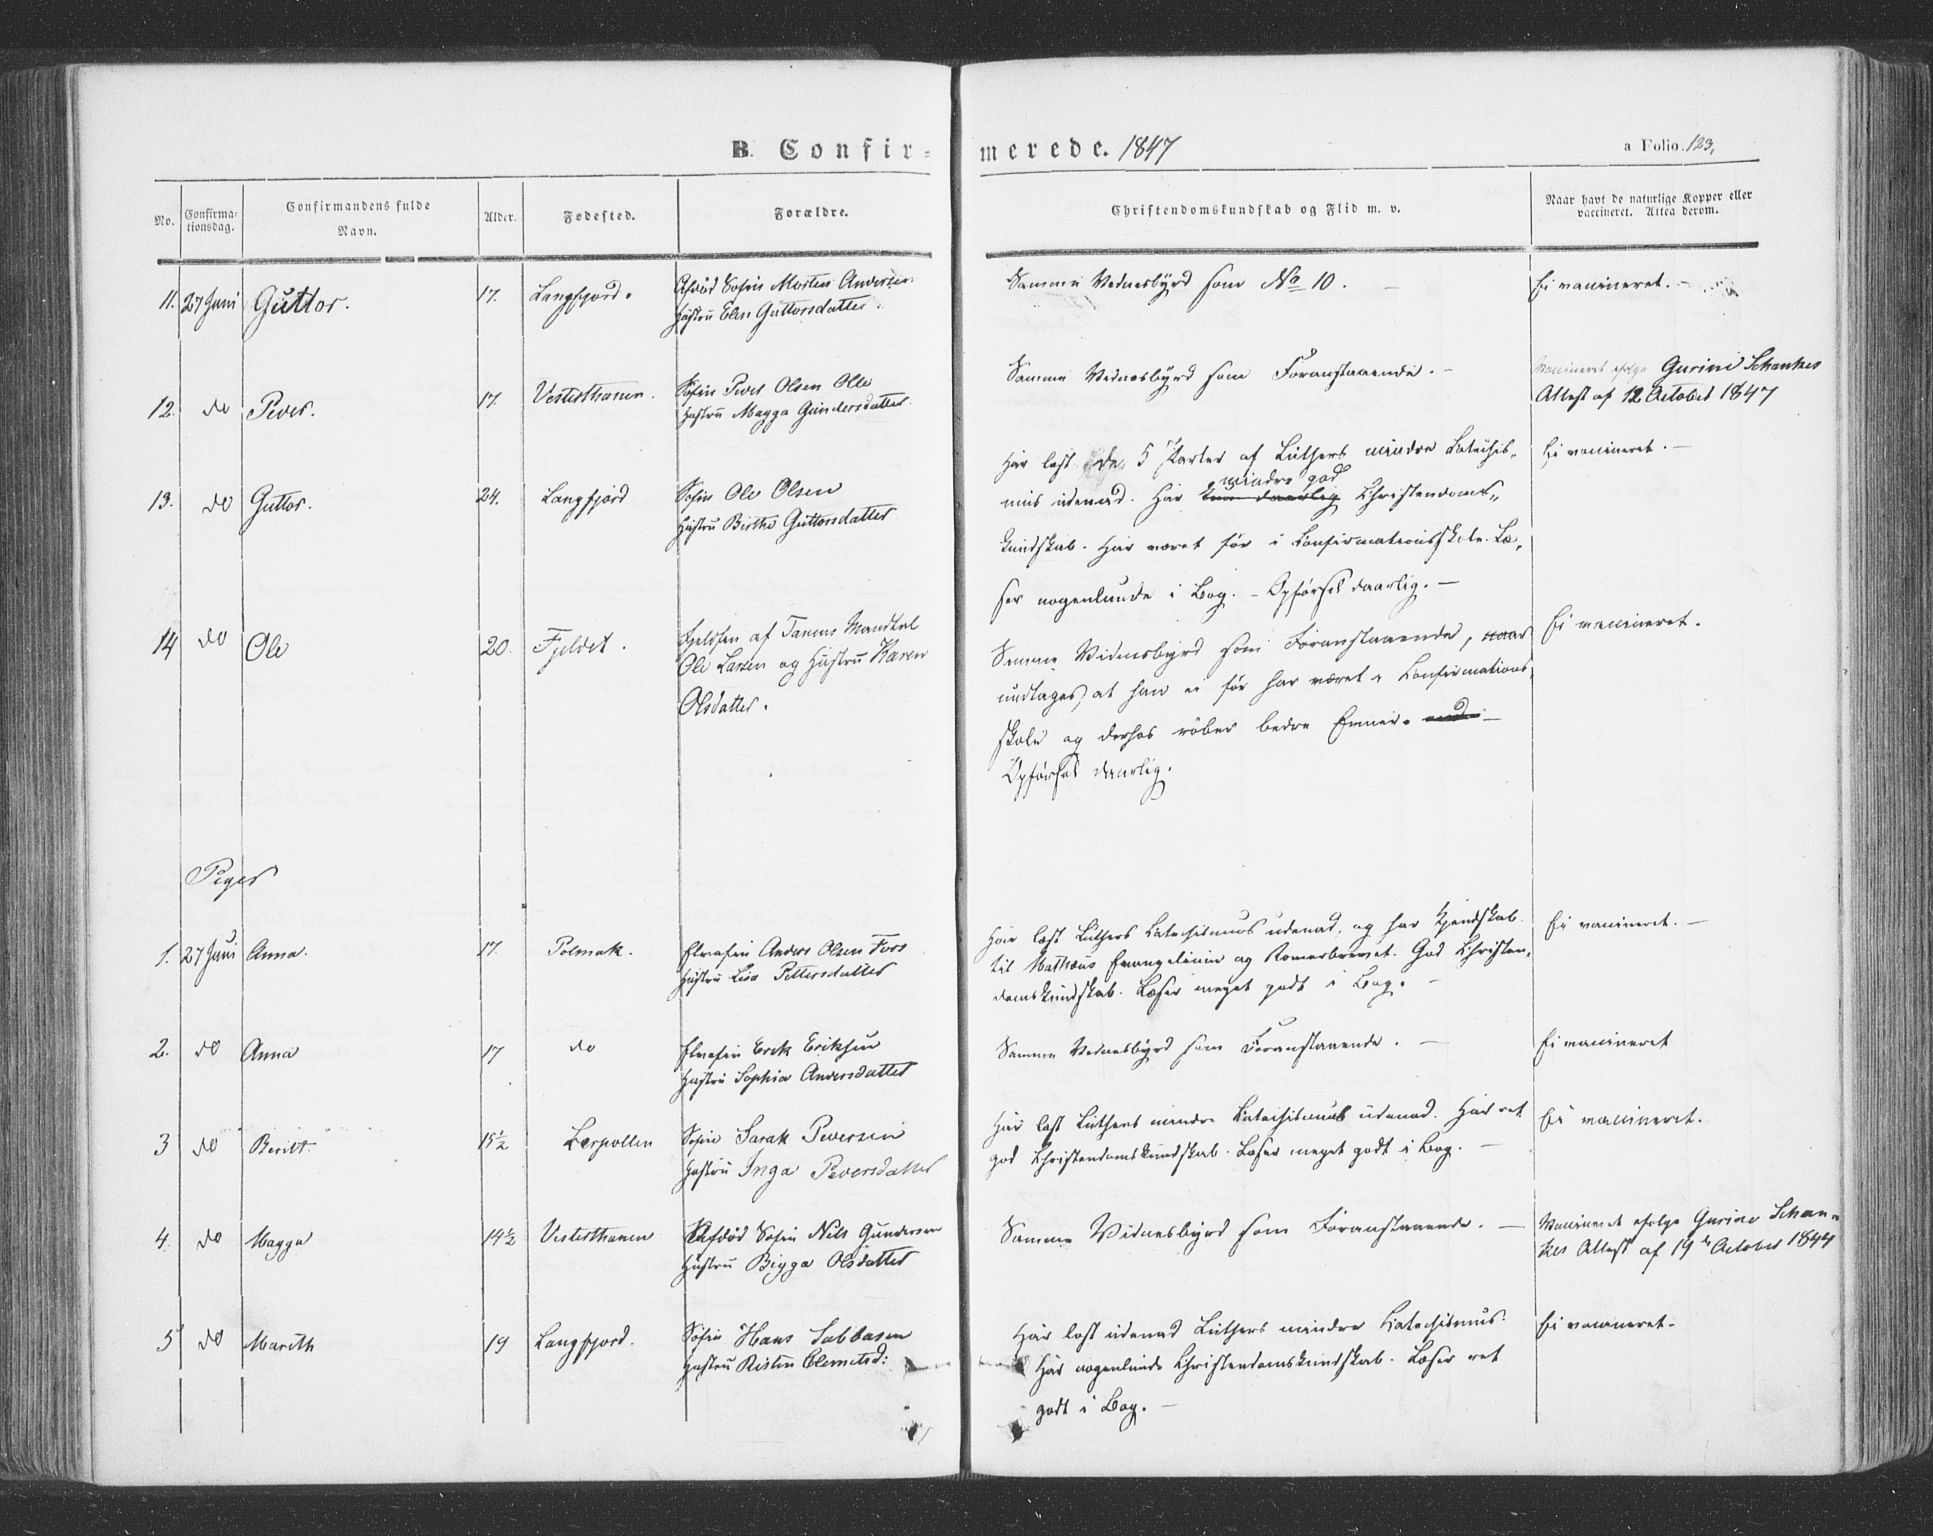 B. Confir-
merede. 1847
a Folio. 123,
No.
Confirma-
tionsdag.
Confirmandens fulde
Navn.
Alder.
Fødested.
Forældre.
Christendomskundskab og Flid m. v.
Naar havt de naturlige Kopper eller
vaccineret. Attea derom.
11. 27 Juni Guttor. 17. Langfjord. Afdød Søfin Morten Andersen
Hustru Elen Guttorsdatter.
Samme Vidnesbyrd som No 10. -
Ei vaccineret. -
12. do Peder. 17. Vesterthanen. Søfin Peder Olsen Olle
Hustru Magga Gundersdatter
Samme Vidnesbyrd som Foranstaaende. -
Vaccineret ifølge Gurine Schankes
Attest af 12 October 1847
13. do Guttor. 24. Langfjord Søfin Ole Olsen
Hustru Birthe Guttorsdatter
Har læst de 5 Parter af Luthers mindre Catechis-
mindre god
mus udenad. Har kun daarlig Christendoms-
kundskab. Har været før i Confirmationsskole. Læ-
ser nogenlunde i Bog. - Opførsel daarlig. -
Ei vaccineret. -
14 do Ole 20. Fjeldet. Fjeldfin af Tanens Mandtal
Ole Larsen og Hustru Karen
Olsdatter.
Samme Vidnesbyrd som Foranstaaende,
undtages, at han ei før har været i Confirmations-
skole og derhos røber bedre Evner.
Opførsel daarlig.
Ei vaccineret.
Piger
1. 27 Juni Anna. 17. Polmak. Elvefin Anders Olsen Fors
Hustru Lisa Pettersdatter
Har læst Luthers Catechismus udenad, og har Kjendskab
til Mathæus Evangelium og Romerbrevet. God Christen-
domskundskab. Læser meget godt i Bog. -
Ei vaccineret. -
2. do Anna 17 do Elvefin Erik Eriksen
Hustru Sophia Andersdatter
Samme Vidnesbyrd som Foranstaaende. -
Ei vaccineret
3 do Beritt. 15½ Lerpollen Søfin Sarak Pedersen
Hustru Inga Pedersdatter
Har læst Luthers mindre Catechismus udenad. Har ret
god Christendomskundskab. Læser meget godt i Bog. -
Ei vaccineret.
4. do Magga 14½ Vesterthanen Afdød Søfin Nils Gundersen
Hustru Bigga Olsdatter
Samme Vidnesbyrd som Foranstaaende. -
Vaccineret ifølge Gurine Schan-
kes Attest af 19de October 1844
5 do Marith 19 Langfjord. Søfin Hans Sabbasen
Hustru Kisten Clemetsd:
Har læst udenad Luthers mindre Catechismus.
Har nogenlunde Christendomskundskab. Læser ret
godt i Bog. -
Ei vaccineret.